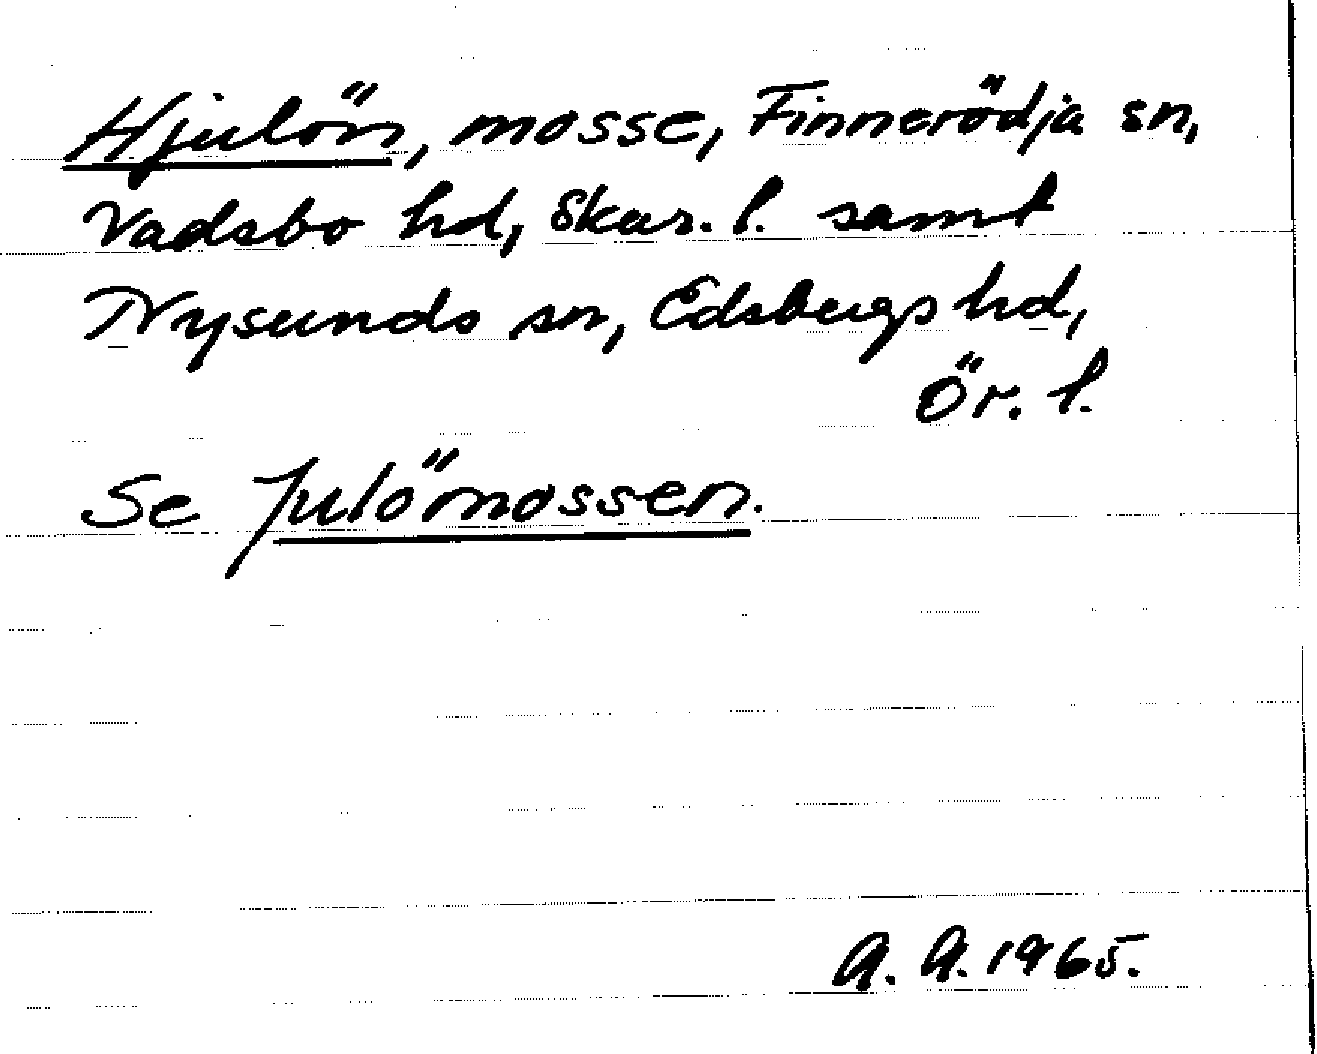 Hjulön, mosse, Finnerödja sn,
Vadsbo hd, Skar. l. samt
Nysunds sn, Edsbergs hd,
Ör. l.
Se Julömossen.
A. A. 1965.